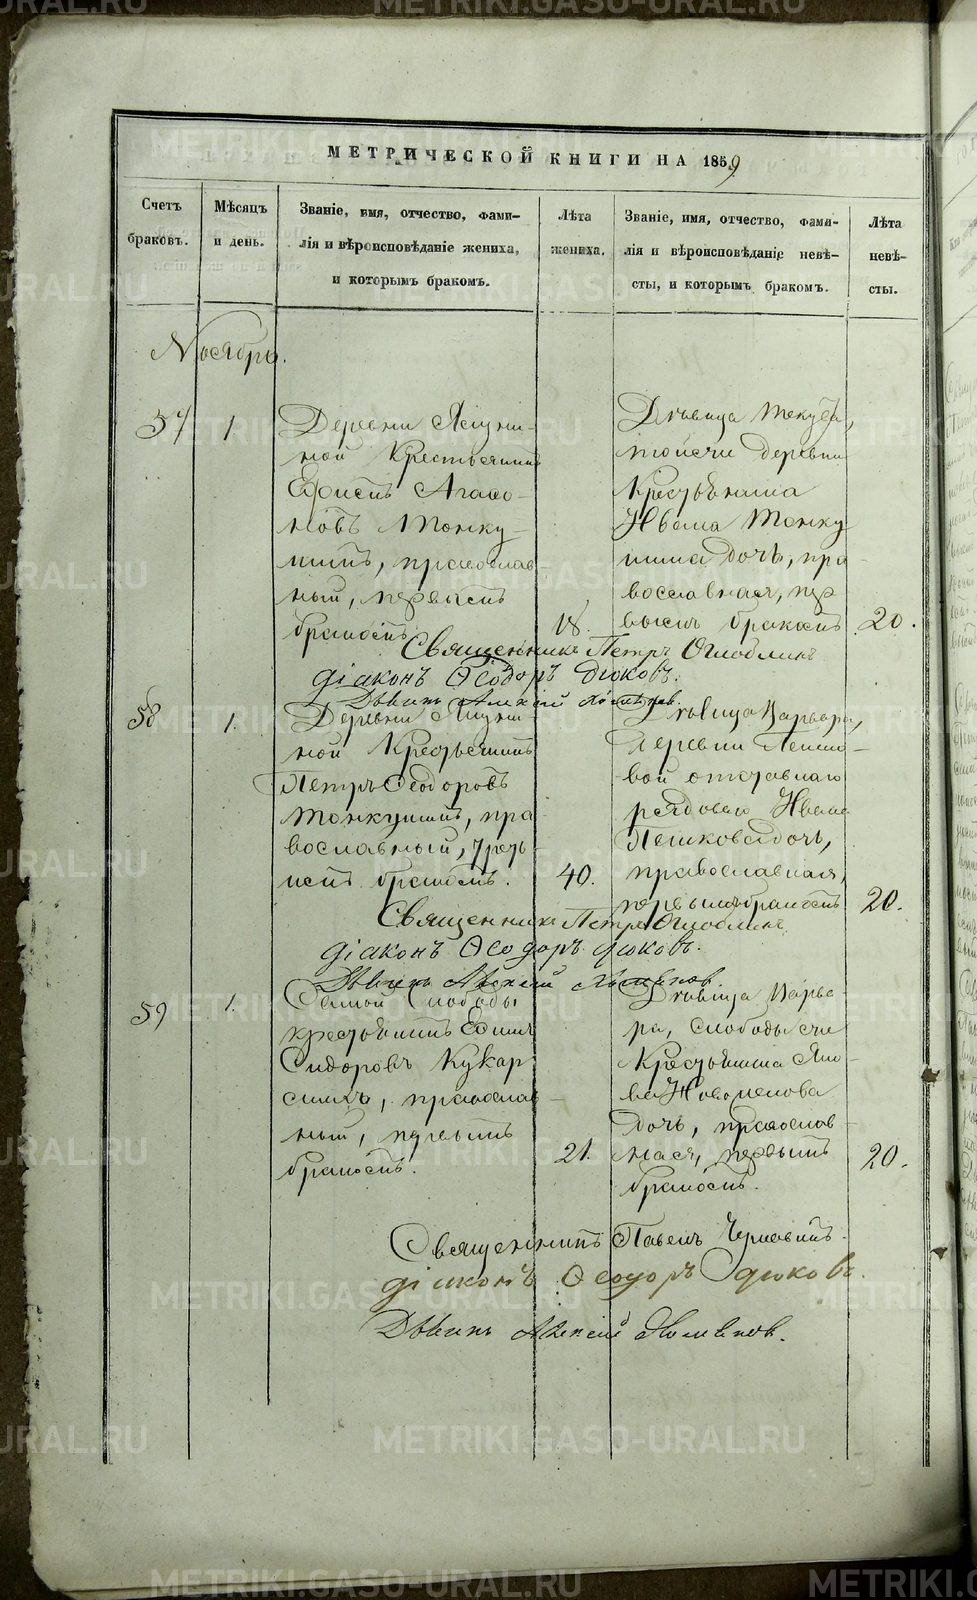 МЕТРИЧЕСКОЙ КНИГИ НА 1859
Счетъ браковъ.
Мѣсяцъ и день.
Званіе, имя, отчество, фами-
лія и вѣроисповѣданіе жениха,
и которымъ бракомъ.
Лѣта жениха.
Званіе, имя, отчество, фами-
лія и вѣроисповѣданіе невѣ-
сты, и которымъ бракомъ.
Лѣта невѣ-
сты.
Ноябрь.
57
1
Деревни
ной Крестьянинъ
Агафо-
новъ Тонку-
шинъ, православ-
ный, первымъ
бракомъ
18.
Дѣвица
тойже деревни
Крестьянина
Ивана Тонку
шина дочь, пра-
вославная, пер
вымъ бракомъ
20.
Священникъ Петръ Оглоблинъ
діаконъ Ѳеодоръ Дюковъ.
Дьячекъ Алексій
58
1.
Деревни
ной Крестьянинъ
Петръ Ѳеодоровъ
Тонкушинъ, пра-
вославный, треть
имъ бракомъ.
40.
Дѣвица Варвара,
деревни Пешко-
вой отставнаго
рядоваго Ивана
Пешкова дочь,
православная,
первымъ бракомъ
20.
Священникъ Петръ Оглоблинъ
діаконъ Ѳеодоръ Дюковъ.
Дьячекъ Алексій
59
1.
Самой Слободы
крестьянинъ Ефимъ
Сидоровъ Кукар
скихъ, православ-
ный, первымъ
бракомъ.
21.
Дѣвица Варва-
ра, слободы сей
Крестьянина Яко-
ва Новопашова
дочь, православ-
ная, первымъ
бракомъ.
20.
Священникъ Павелъ Чернавинъ.
діаконъ Ѳеодоръ Дюковъ.
Дьячекъ Алексій
METRIKI.GASO-URAL.RU